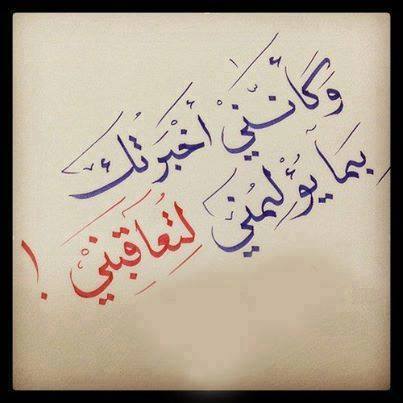 وَكَأَنَّنِيْ أَخْبَرْتُكَ
بِمَا يُؤْلِمُنِيْ لِتُعَاقِبَنِيْ !